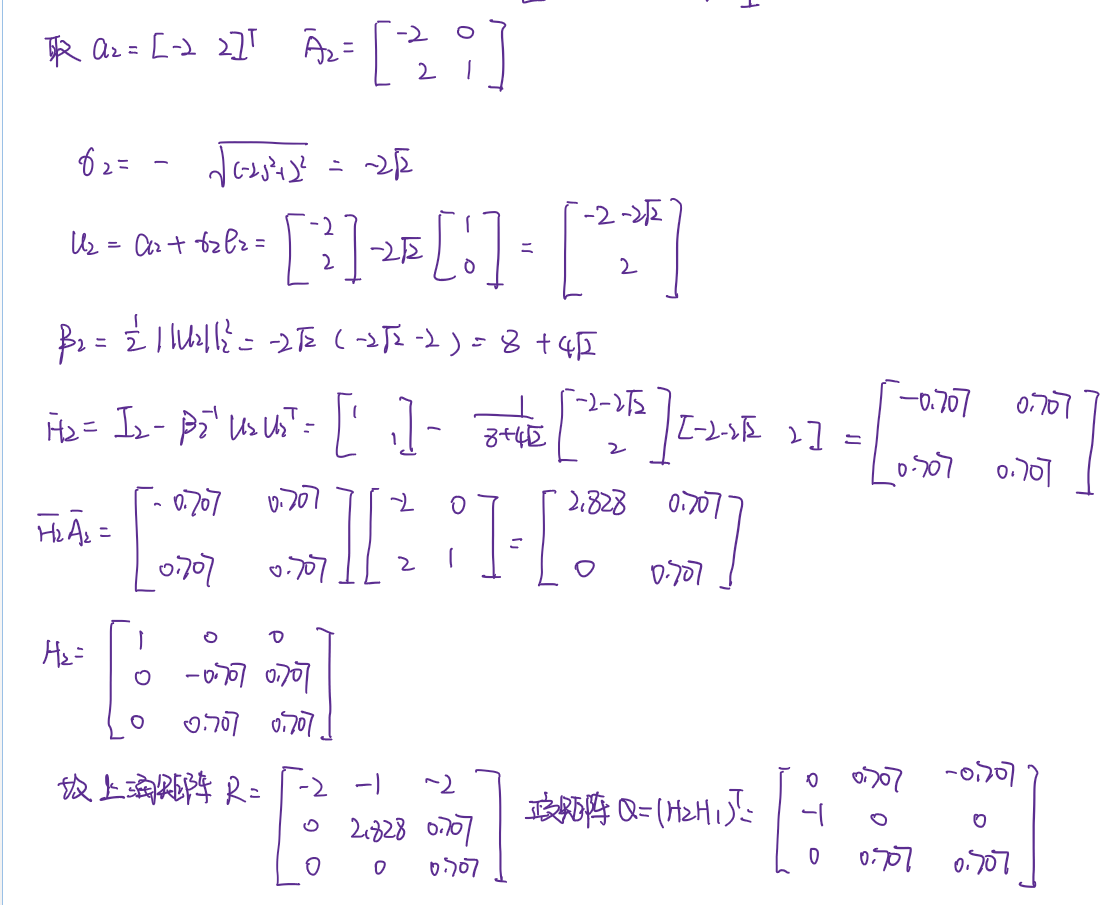 取 a₂ = [-2 2]ᵀ Ā₂ = [-2 0; 2 1]
σ₂ = - √((-2)²+2²) = -2√2
u₂ = a₂ + σ₂e₂ = [-2; 2] -2√2 [1; 0] = [-2-2√2; 2]
β₂ = 1/2 ||u₂||₂² = -2√2 (-2√2 -2) = 8 + 4√2
H̄₂ = I₂ - β₂⁻¹ u₂ u₂ᵀ = [1 ; 1] - 1/(8+4√2) [-2-2√2; 2] [-2-2√2 2] = [-0.707 0.707; 0.707 0.707]
H̄₂Ā₂ = [-0.707 0.707; 0.707 0.707] [-2 0; 2 1] = [2.828 0.707; 0 0.707]
H₂ = [1 0 0; 0 -0.707 0.707; 0 0.707 0.707]
故上三角矩阵 R = [-2 -1 -2; 0 2.828 0.707; 0 0 0.707] 正交矩阵 Q = (H₂H₁)ᵀ = [0 0.707 -0.707; -1 0 0; 0 0.707 0.707]